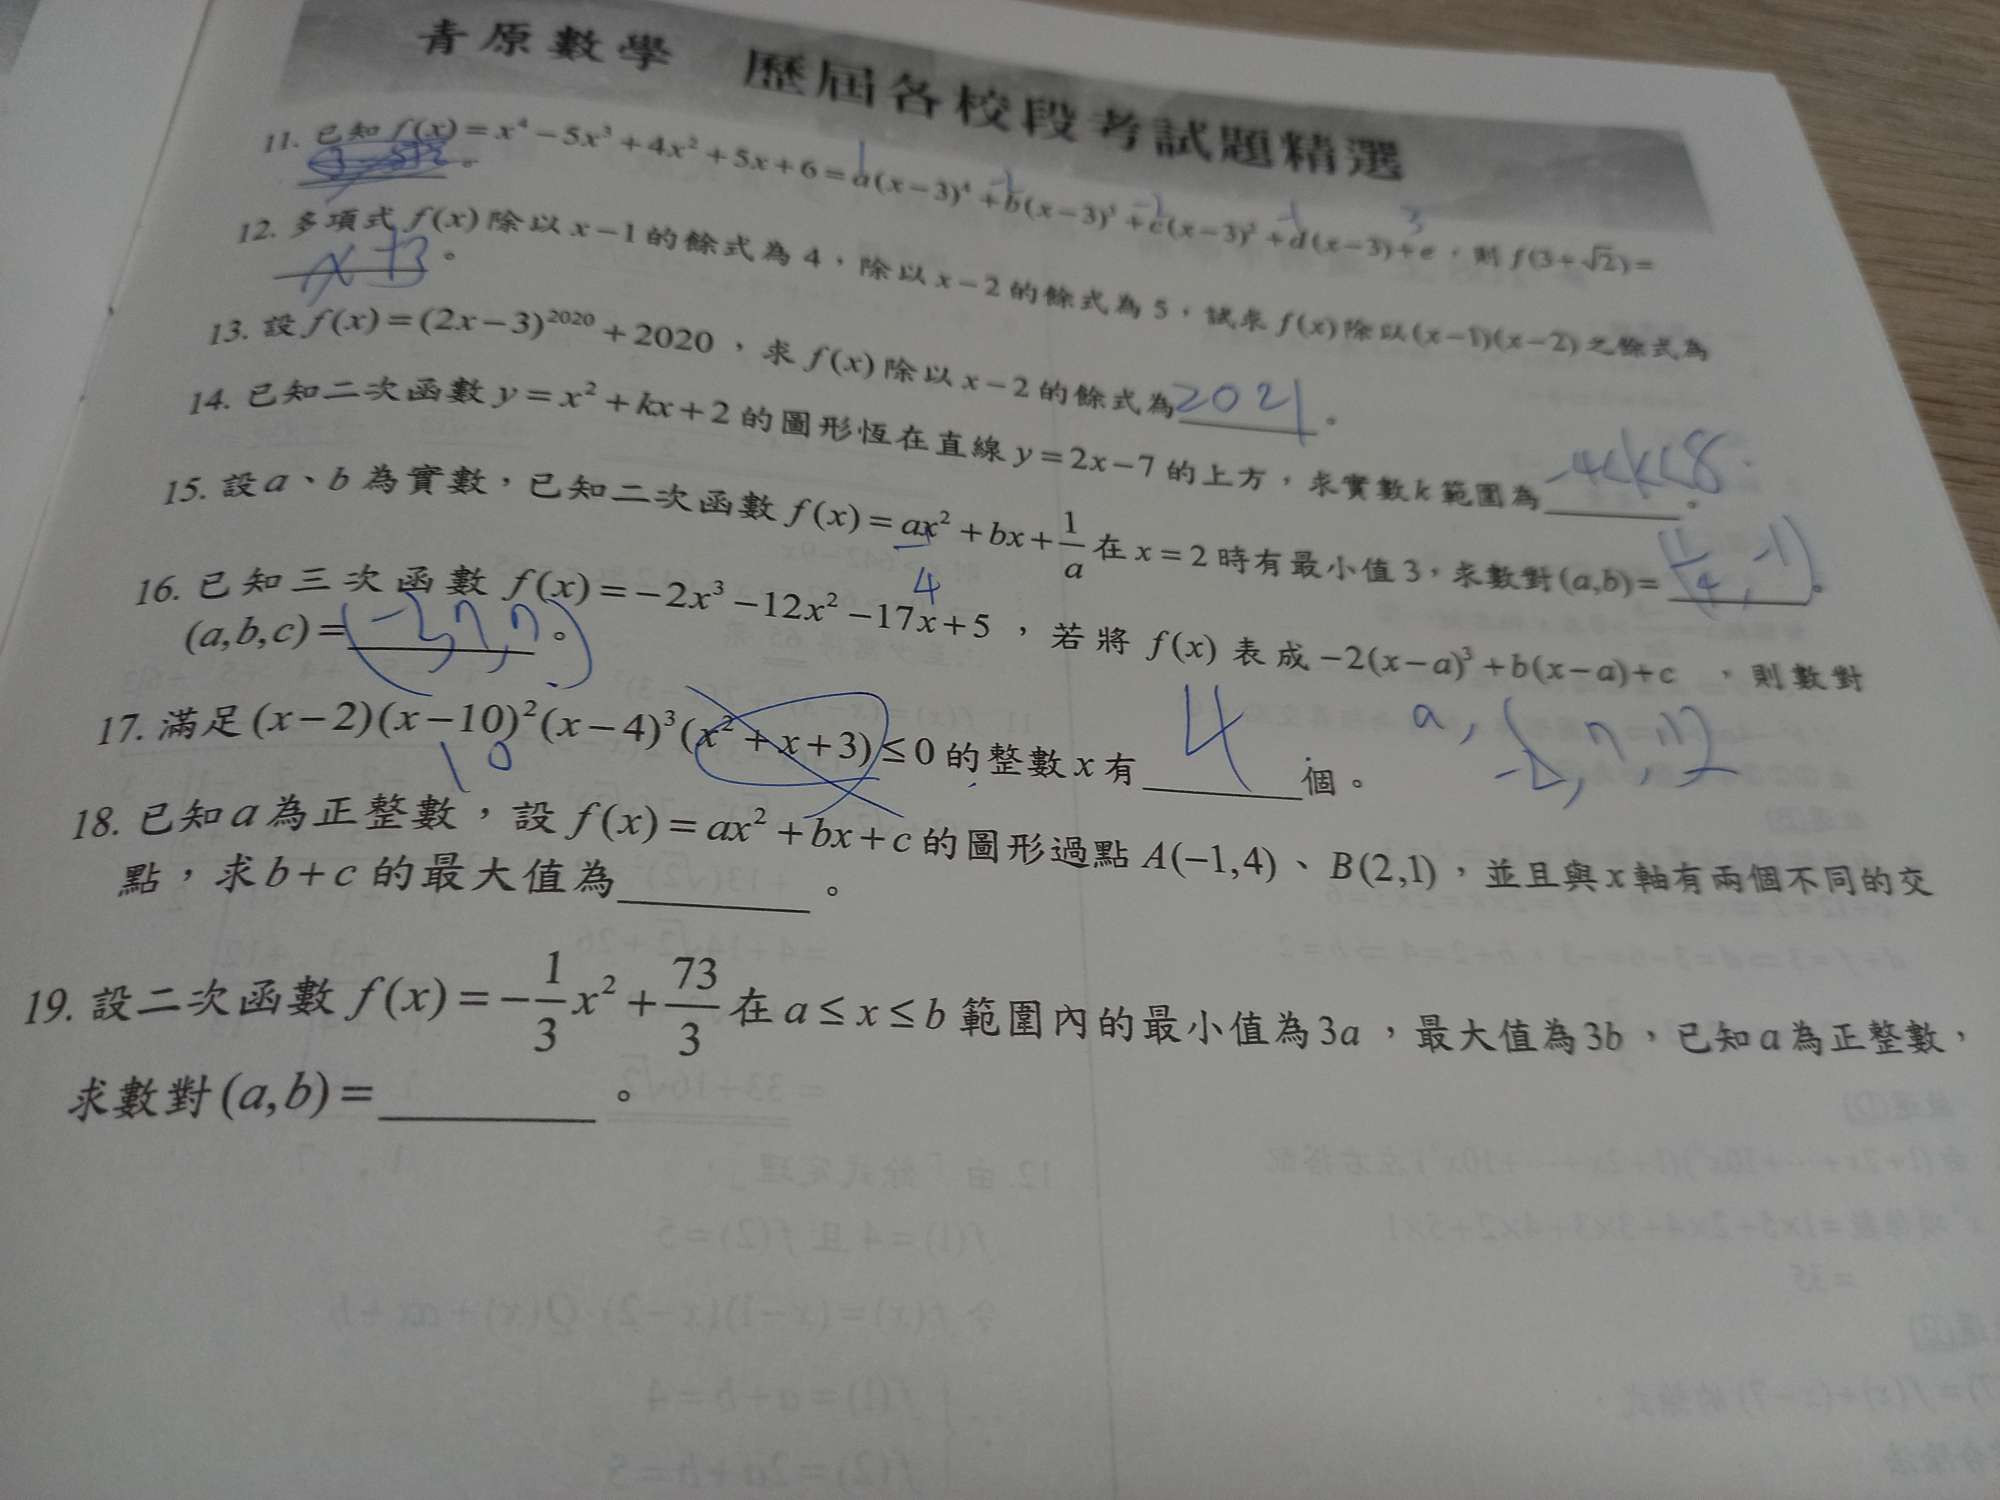 青原數學 歷屆各校段考試題精選
11. 已知 f(x)=x⁴−5x³+4x²+5x+6=a(x−3)⁴+b(x−3)³+c(x−3)²+d(x−3)+e，則 f(3+√2)=
。
12. 多項式 f(x) 除以 x−1 的餘式為 4，除以 x−2 的餘式為 5，試求 f(x) 除以 (x−1)(x−2) 之餘式為
x+3 。
13. 設 f(x)=(2x−3)²⁰²⁰+2020，求 f(x) 除以 x−2 的餘式為 2021 。
14. 已知二次函數 y=x²+kx+2 的圖形恆在直線 y=2x−7 的上方，求實數 k 範圍為 -4<k<8 。
15. 設 a、b 為實數，已知二次函數 f(x)=ax²+bx+1/a 在 x=2 時有最小值 3，求數對 (a,b)= (1/4, -1) 。
4
16. 已知三次函數 f(x)=−2x³−12x²−17x+5，若將 f(x) 表成 −2(x−a)³+b(x−a)+c ，則數對
(a,b,c)= 。
17. 滿足 (x−2)(x−10)²(x−4)³(x²+x+3)≤0 的整數 x 有 4 個。
10
18. 已知 a 為正整數，設 f(x)=ax²+bx+c 的圖形過點 A(−1,4)、B(2,1)，並且與 x 軸有兩個不同的交
點，求 b+c 的最大值為 。
19. 設二次函數 f(x)=−1/3x²+73/3 在 a≤x≤b 範圍內的最小值為 3a，最大值為 3b，已知 a 為正整數，
求數對 (a,b)= 。